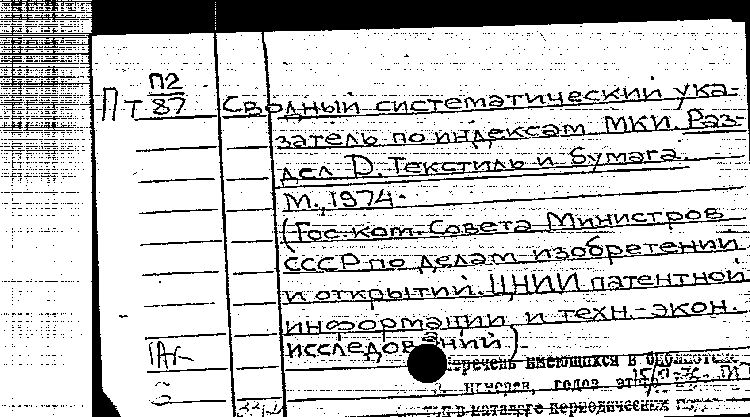 П2
Пт 87 Сводный систематический ука-
затель по индексам МКИ. Раз-
дел D. Текстиль и бумага.
М., 1974.
(Гос. ком. Совета Министров
СССР по делам изобретений
и открытий. ЦНИИ патентной
информации и техн.-экон.
исследований)
Перечень имеющихся в библиотеке
номеров, годов
в каталоге периодических